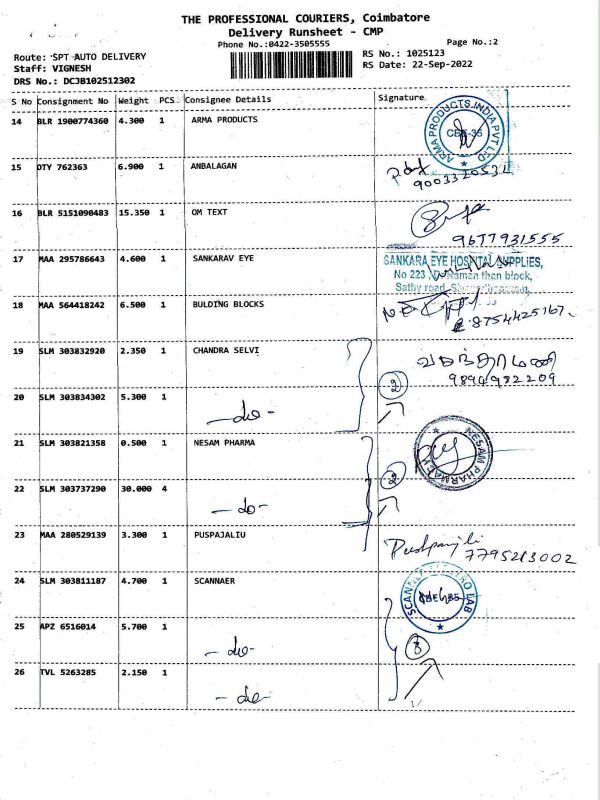 THE PROFESSIONAL COURIERS, Coimbatore
Delivery Runsheet - CMP
Phone No.:0422-3505555
Page No.:2
Route: SPT AUTO DELIVERY
RS No.: 1025123
Staff: VIGNESH
RS Date: 22-Sep-2022
DRS No.: DCJB102512302
S No Consignment No Weight PCS Consignee Details Signature
14 BLR 1900774360 4.300 1 ARMA PRODUCTS
ARMA PRODUCTS INDIA PVT LTD
CBE-35
15 DTY 762363 6.900 1 ANBALAGAN
16 BLR 5151090483 15.350 1 OM TEXT
9677931555
17 MAA 295786643 4.600 1 SANKARAV EYE
SANKARA EYE HOSPITAL SUPPLIES,
No 223 Raman then block,
Sathy road
18 MAA 564418242 6.500 1 BULDING BLOCKS
8754425167
19 SLM 303832920 2.350 1 CHANDRA SELVI
வசந்தாமணி
9894982209
20 SLM 303834302 5.300 1 -do-
2
21 SLM 303821358 0.500 1 NESAM PHARMA
NESAM PHARMACY
22 SLM 303737290 30.000 4 -do-
2
23 MAA 280529139 3.300 1 PUSPAJALIU
Pushpanjli
7795213002
24 SLM 303811187 4.700 1 SCANNAER
LAB
25 APZ 6516014 5.700 1 -do-
3
26 TVL 5263285 2.150 1 -do-